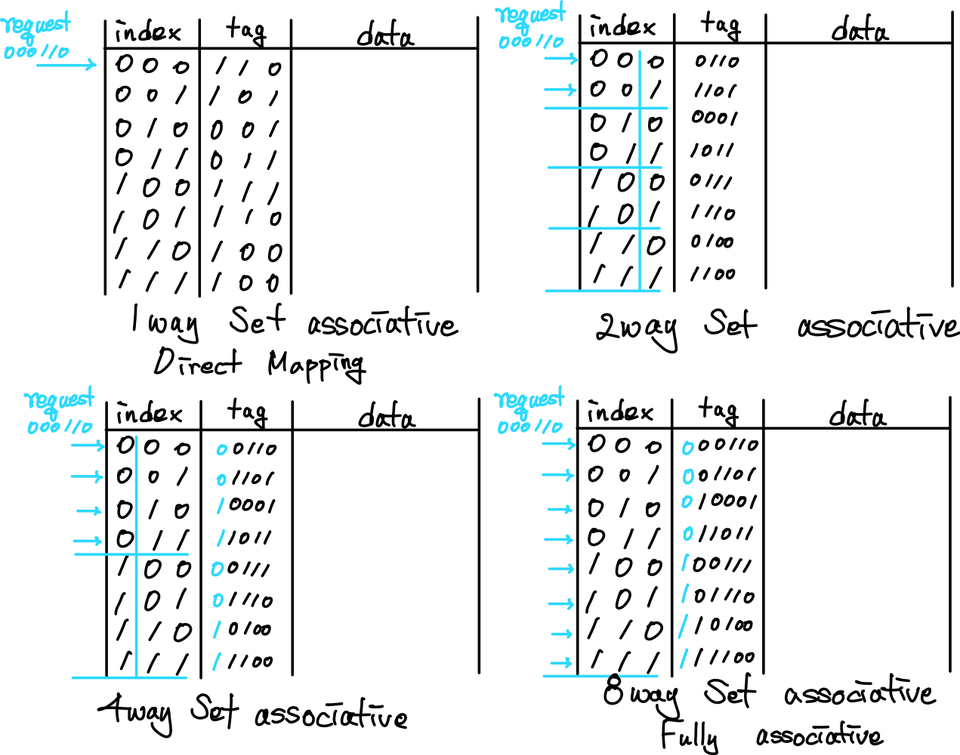 request
000110
index tag data
000 110
001 101
010 001
011 011
100 111
101 110
110 100
111 100
1way Set associative
Direct Mapping
request
000110
index tag data
000 0110
001 1101
010 0001
011 1011
100 0111
101 1110
110 0100
111 1100
2way Set associative
request
000110
index tag data
000 00110
001 01101
010 10001
011 11011
100 00111
101 01110
110 10100
111 11100
4way Set associative
request
000110
index tag data
000 000110
001 001101
010 010001
011 011011
100 100111
101 101110
110 110100
111 111100
8way Set associative
Fully associative